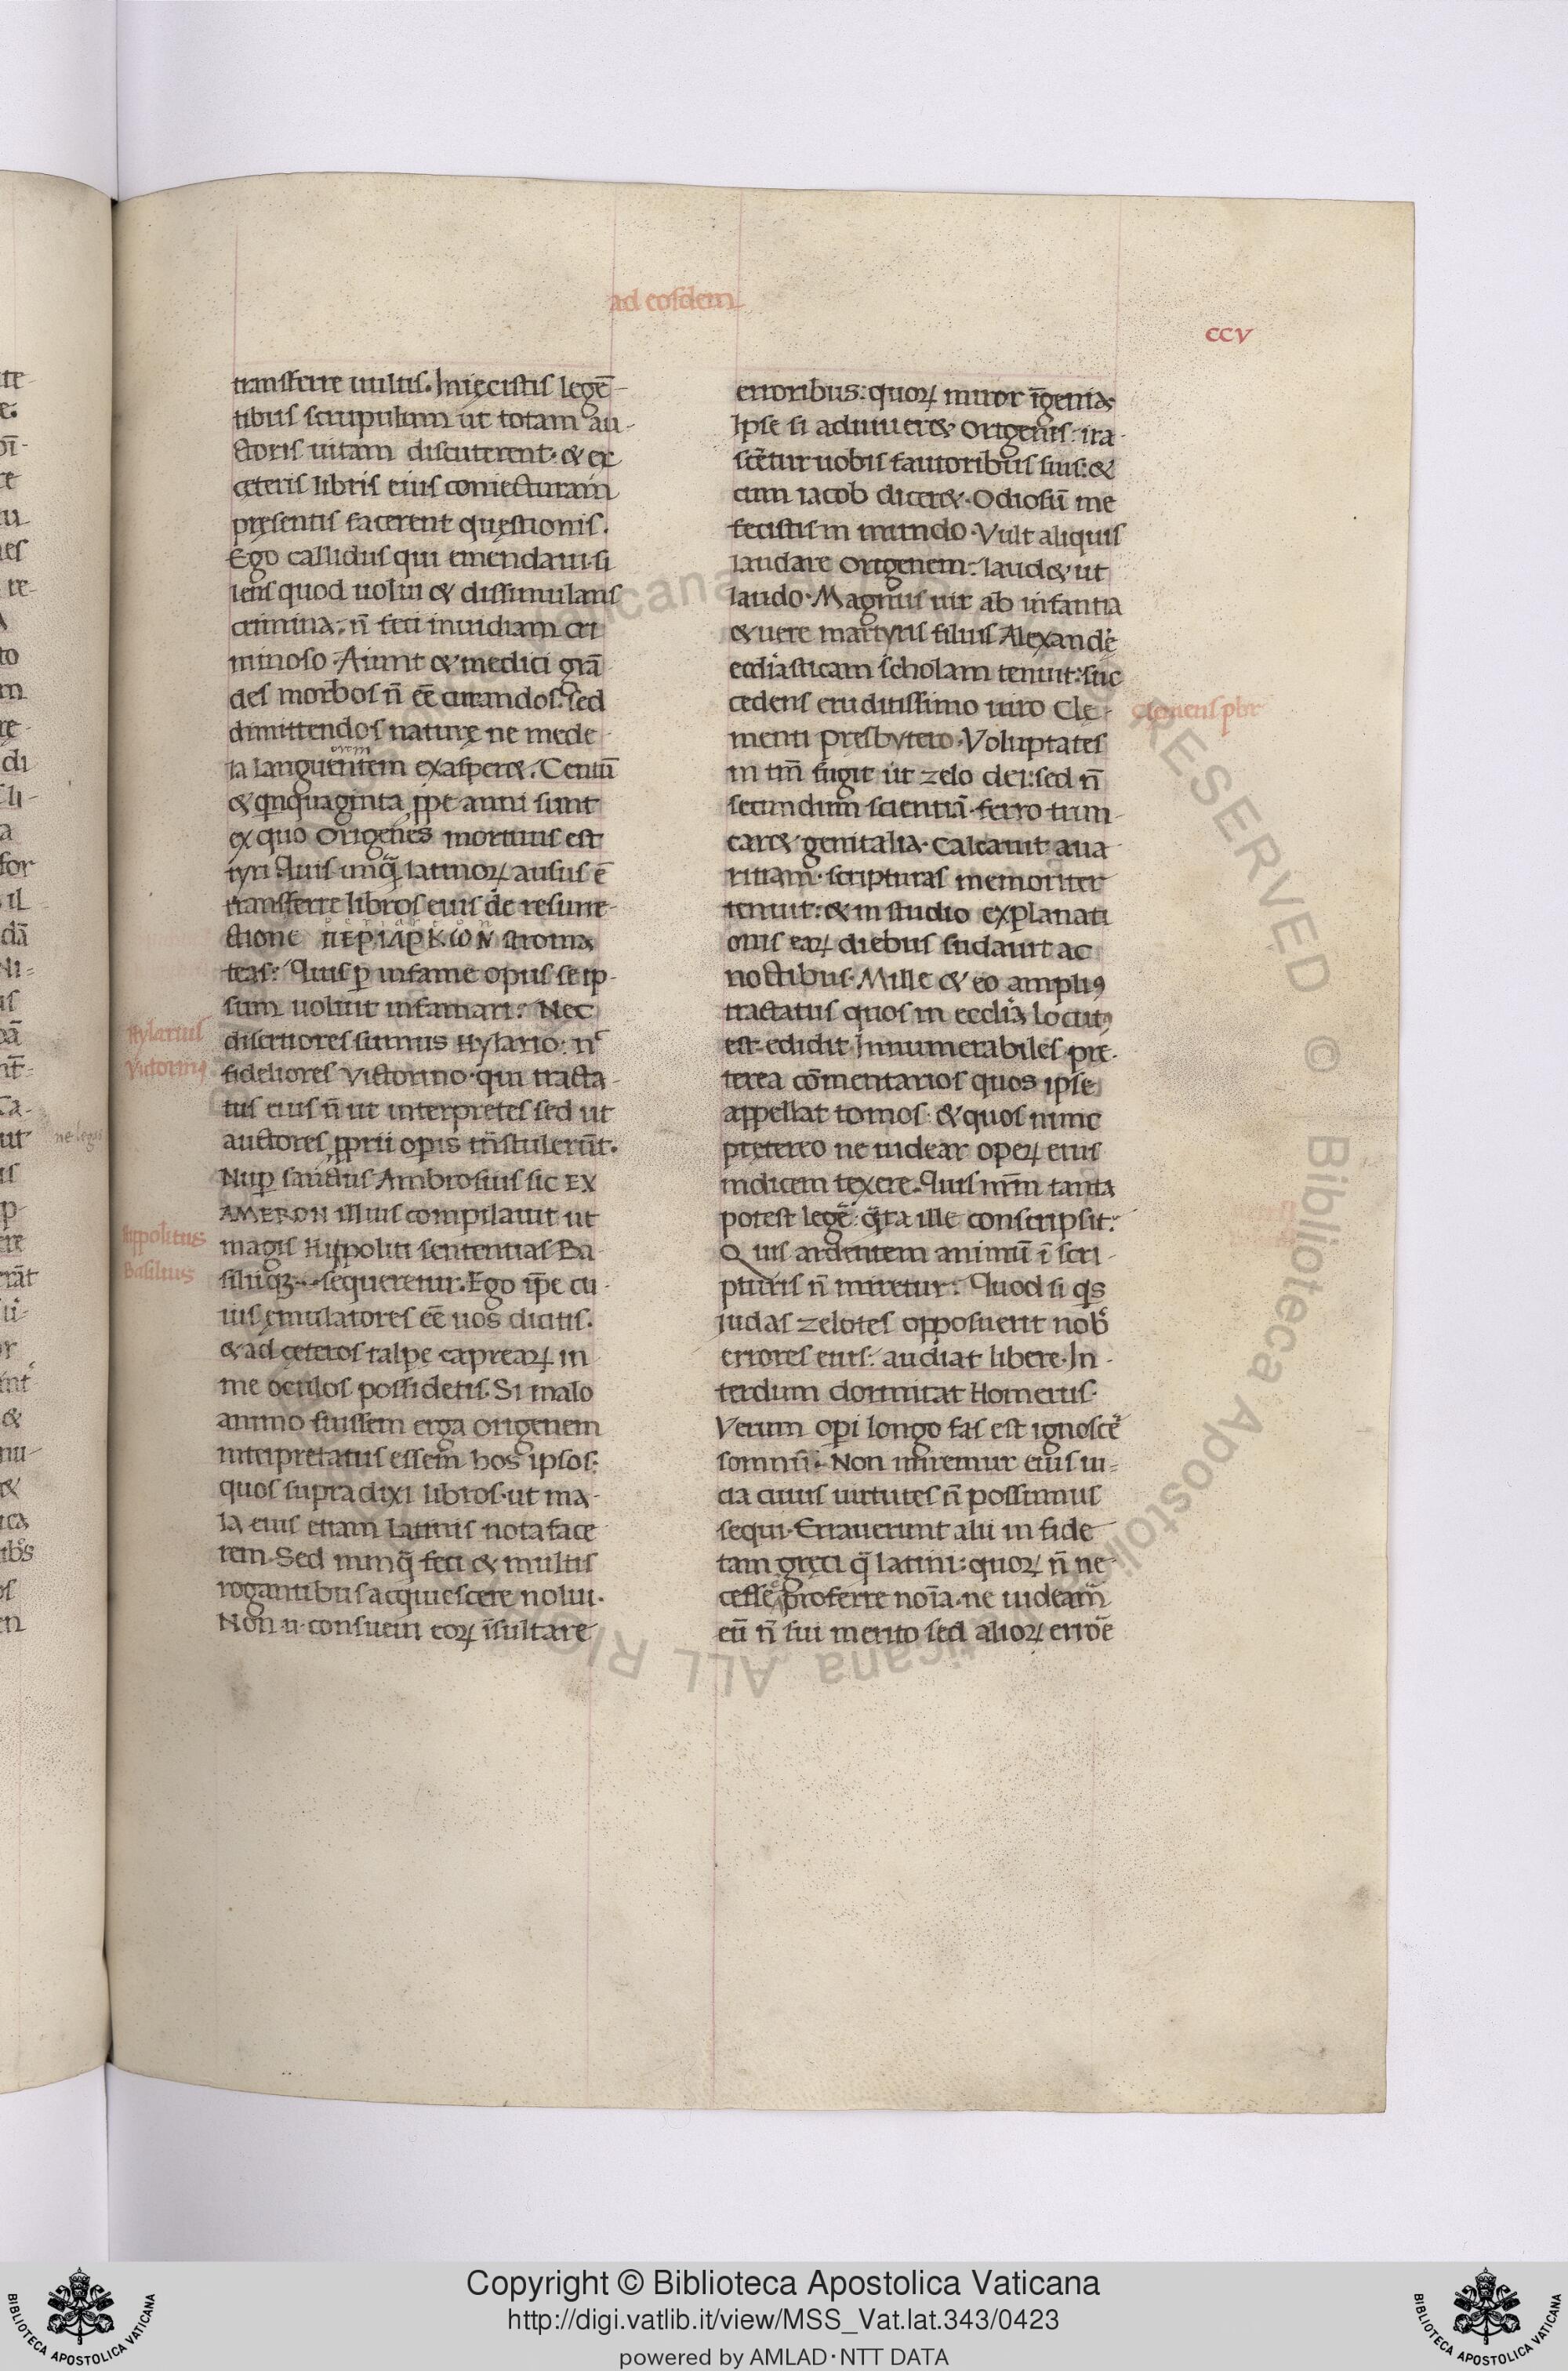 ad eosdem
ccv
transferre uultis. Inięcistis legē-
tibus scrupulum ut totam au-
ctoris uitam discuterent. & ex
ceteris libris eius coniecturam
pręsentis facerent quęstionis.
Ego callidus qui emendaui. si
lens quod uolui & dissimulans
crimina. n̄ feci inuidiam cri
minoso. Aiunt & medici grā
des morbos n̄ eē curandos. sed
dimittendos naturę ne mede
orem
la languentem exasper&. Centū
& qnquaginta ꝓpe anni sunt
ex quo Origenes mortuus est
tyri Quis unq̄ latinoꝝ ausus ē
transferre libros eius de resurre-
ctione ΠΕΡΙΑΡΚΩΝ stroma
teas: Quis ꝑ infame opus se ip-
sum uoluit infamari: Nec
disertiores sumus Hylario. n̄
fideliores Victorino. qui tracta-
tus eius n̄ ut interpretes sed ut
auctores ꝓprii opis tn̄stulerūt.
Nuꝑ sanctus Ambrosius sic EX
AMERON illius compilauit ut
magis Hippoliti sententias Ba-
siliiqꝫ sequeretur. Ego ip̄e cu
ius ęmulatores eē uos dicitis.
& ad ceteros talpe capreaꝝ in
me oculos possidetis. Si malo
animo fuissem erga origenem
interpretatus essem hos ipsos:
quos supra dixi libros. ut ma-
la eius etiam latinis nota face
rem. Sed nunq̄ feci & multis
rogantibus acquiescere nolui.
Non n. consueui eoꝝ īsultare
Hylarius
Victorinꝰ
hippolitus
Basilius
erroribus: quoꝝ miror īgenia.
Ipse si aduiuer& Origenis: ira-
scēt̄ur uobis fautoribus suis: &
cum iacob dicer&. Odiosū me
fecistis in mundo. Vult aliquis
laudare origenem: laud& ut
laudo. Magnus uir ab infantia
& uere martyris filius Alexandē
eccl̄iasticam scholam tenuit: suc
cedens eruditissimo uiro Cle-
menti presbytero. Voluptates
in tm̄ fugit ut zelo dei: sed n̄
secundum scientiā. ferro trun-
car& genitalia. Calcauit aua
ritiam. scripturas memoriter
tenuit: & in studio explanati
onis eaꝝ diebus sudauit ac
noctibus. Mille & eo ampliꝰ
tractatus quos in eccl̄ia locutꝰ
est. edidit Innumerabiles pre-
terea cōmentarios quos ipse
appellat tomos: & quos nunc
pretereo ne uidear opeꝝ eius
indicem texere. Quis nr̄m tanta
potest legē: q̄ta ille conscripsit:
Quis ardentem animū ī scri-
pturis n̄ miretur: Quod si qs
iudas zelotes opposuerit nob̄
errores eius: audiat libere. In-
terdum dormitat Homerus.
Verum opi longo fas est ignoscē
somnū. Non miremur eius ui-
cia cuius uirtutes n̄ possumus
sequi. Errauerunt alii in fide
tam gręci q̄ latini: quoꝝ n̄ ne-
cesse proferre noīa. ne uideam̄
eū n̄ sui merito sed alioꝝ errōe
Clemens pbr
Copyright © Biblioteca Apostolica Vaticana
http://digi.vatlib.it/view/MSS_Vat.lat.343/0423
powered by AMLAD·NTT DATA
BIBLIOTECA APOSTOLICA VATICANA
BIBLIOTECA APOSTOLICA VATICANA